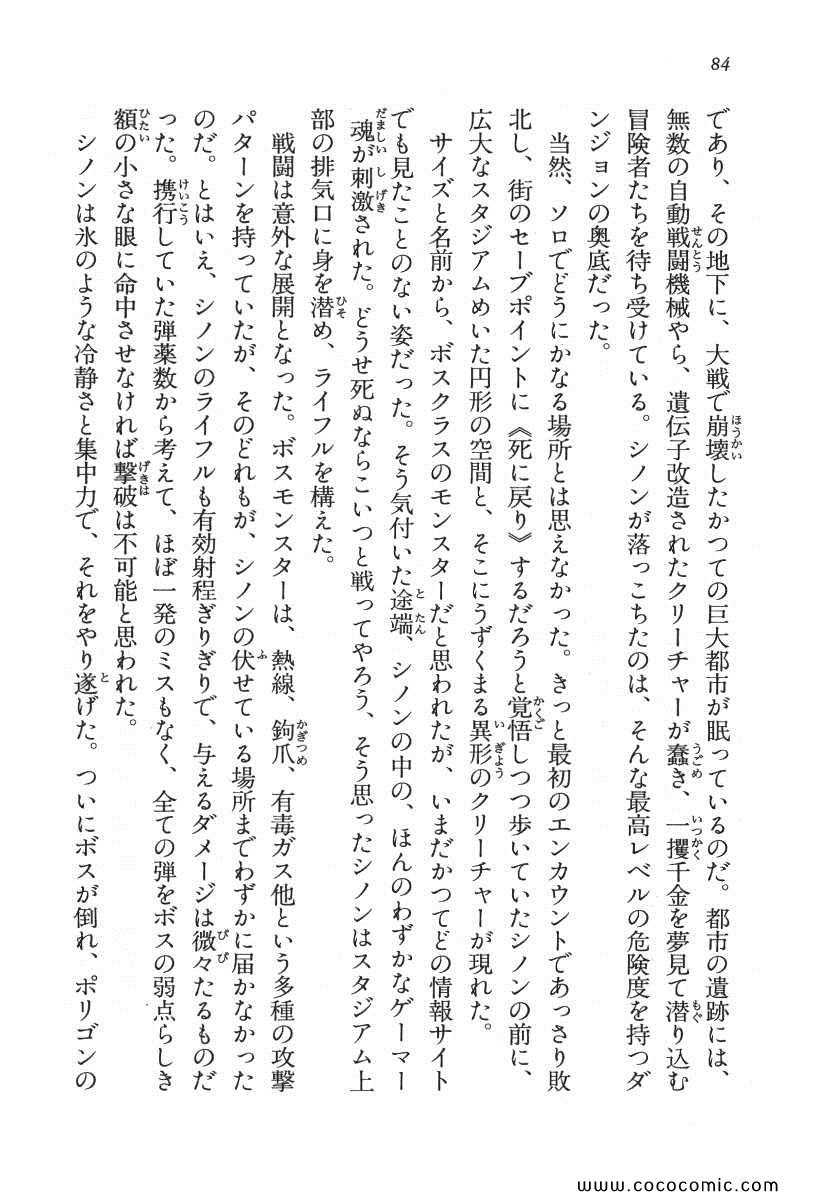 84
であり、その地下に、大戦で崩壊したかつての巨大都市が眠っているのだ。都市の遺跡には、
無数の自動戦闘機械やら、遺伝子改造されたクリーチャーが蠢き、一攫千金を夢見て潜り込む
冒険者たちを待ち受けている。シノンが落っこちたのは、そんな最高レベルの危険度を持つダ
ンジョンの奥底だった。
当然、ソロでどうにかなる場所とは思えなかった。きっと最初のエンカウントであっさり敗
北し、街のセーブポイントに《死に戻り》するだろうと覚悟しつつ歩いていたシノンの前に、
広大なスタジアムめいた円形の空間と、そこにうずくまる異形のクリーチャーが現れた。
サイズと名前から、ボスクラスのモンスターだと思われたが、いまだかつてどの情報サイト
でも見たことのない姿だった。そう気付いた途端、シノンの中の、ほんのわずかなゲーマー
魂が刺激された。どうせ死ぬならこいつと戦ってやろう、そう思ったシノンはスタジアム上
部の排気口に身を潜め、ライフルを構えた。
戦闘は意外な展開となった。ボスモンスターは、熱線、鉤爪、有毒ガス他という多種の攻撃
パターンを持っていたが、そのどれもが、シノンの伏せている場所までわずかに届かなかった
のだ。とはいえ、シノンのライフルも有効射程ぎりぎりで、与えるダメージは微々たるものだ
った。携行していた弾薬数から考えて、ほぼ一発のミスもなく、全ての弾をボスの弱点らしき
額の小さな眼に命中させなければ撃破は不可能と思われた。
シノンは氷のような冷静さと集中力で、それをやり遂げた。ついにボスが倒れ、ポリゴンの
www.cococomic.com